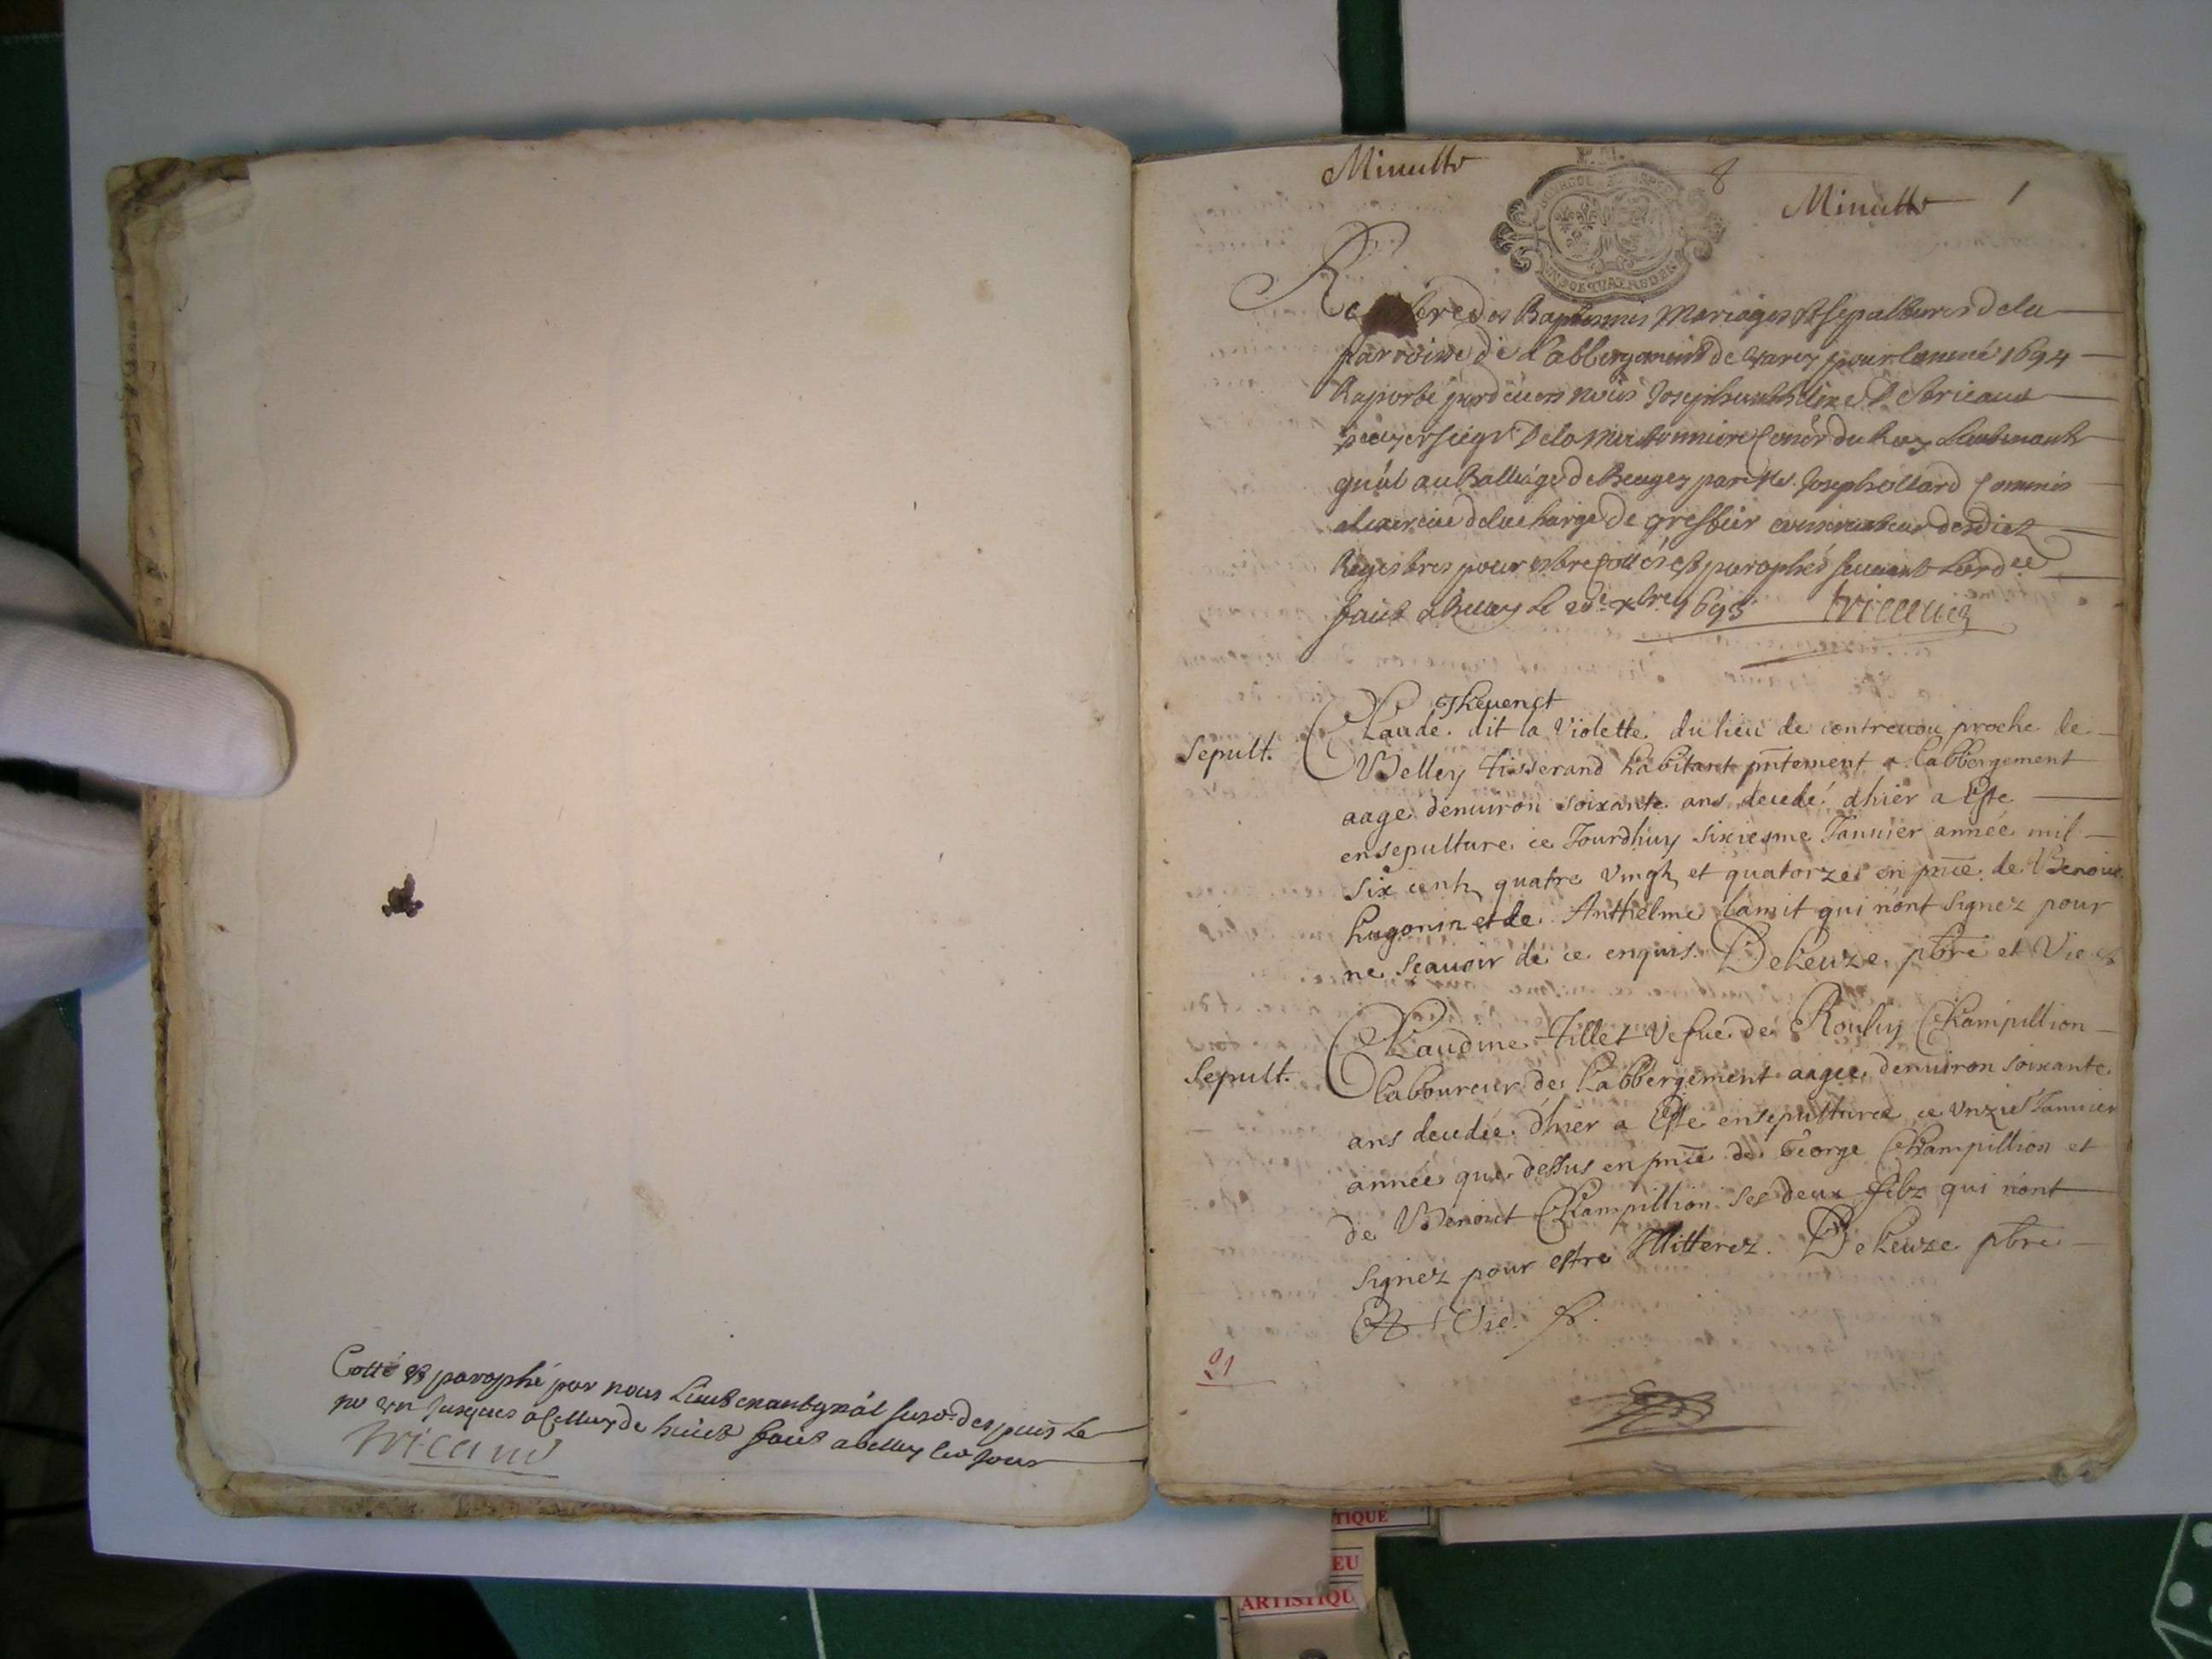 Cotté et parophé par nous Lieutenant gnâl susd. despuis le
no un jusques a celluy de huict faict a belley led jour
Tricaud
Minutte
8
Minutte 1
Regestre des Baptesmes Mariages et sepultures de la
parroisse de L'abbergement de varey pour l'année 1694
Raporté pardevers nous Joseph anthelme De Tricaud
Seigr De la Conér du Roy Lieutenant
gnâl au Balliage de Beugey par Me. Joseph ollard Commis
a l'exercice de la charge de greffier conservateur desdict
Regestres pour estre cottés et parophés suivant Lord
faict a Belley le xbre 1693 Tricaud
Thevenet
Sepult. Claude dit la Violette du lieu de contrevou proche de
Belley Tisserand habitant pntement a Labbergement
aage denuiron soixante ans decedé dhier a Este
ensepulture ce Jourdhuy sixiesme Januier année mil
six cents quatre vingts et quatorze en pnce de Benoict
hugonin et de Anthelme lamit qui n'ont signez pour
ne scauoir de ce enquis. Deheuze pbre et Vic
Sepult. Claudine Tillet vefue de Rouly Champillion
laboureur de Labbergement aagée denuiron soixante
ans decedée d'hier a Este ensepulturee ce vnzie Januier
année que dessus en pnce de George Champillion et
de Benoict Champillion ses deux filz qui n'ont
signez pour estre Illitterez. Deheuze pbre
Et Vic.
21
TIQUE
EU
ARTISTIQU